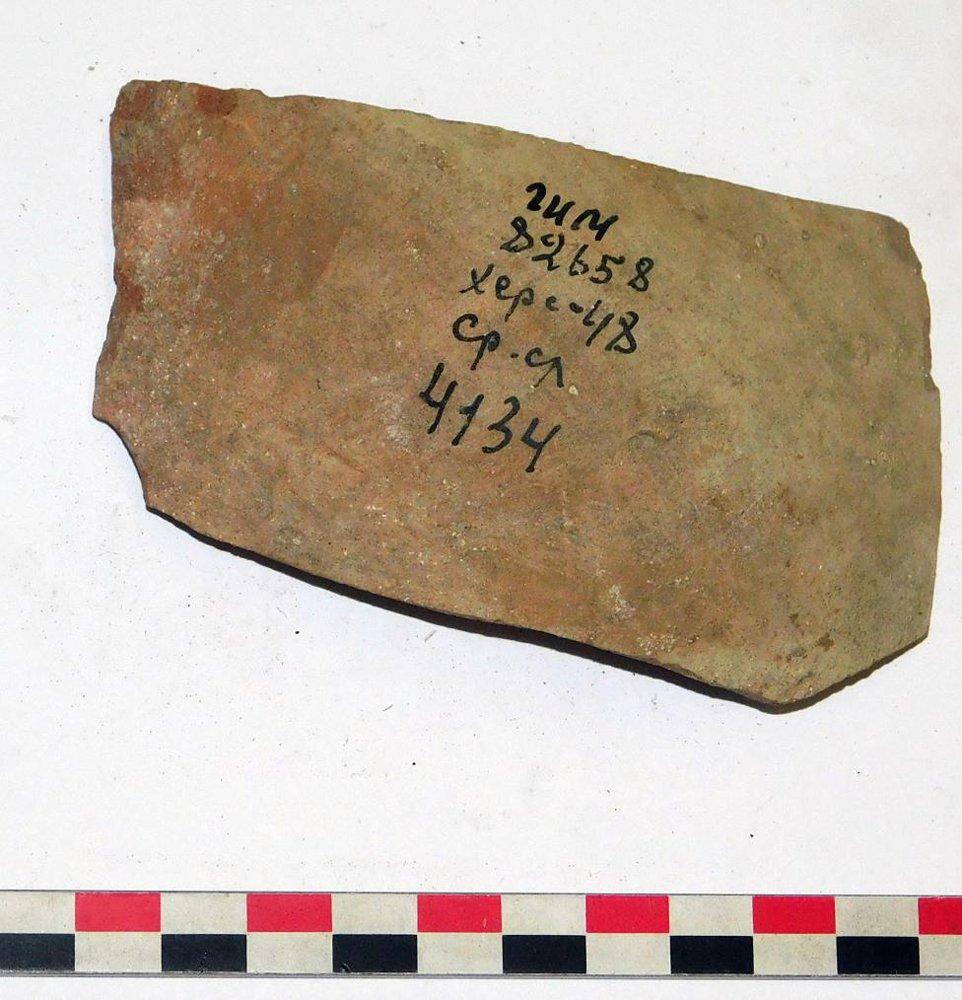 гим
82658
Херс-48
ср.сл
4134